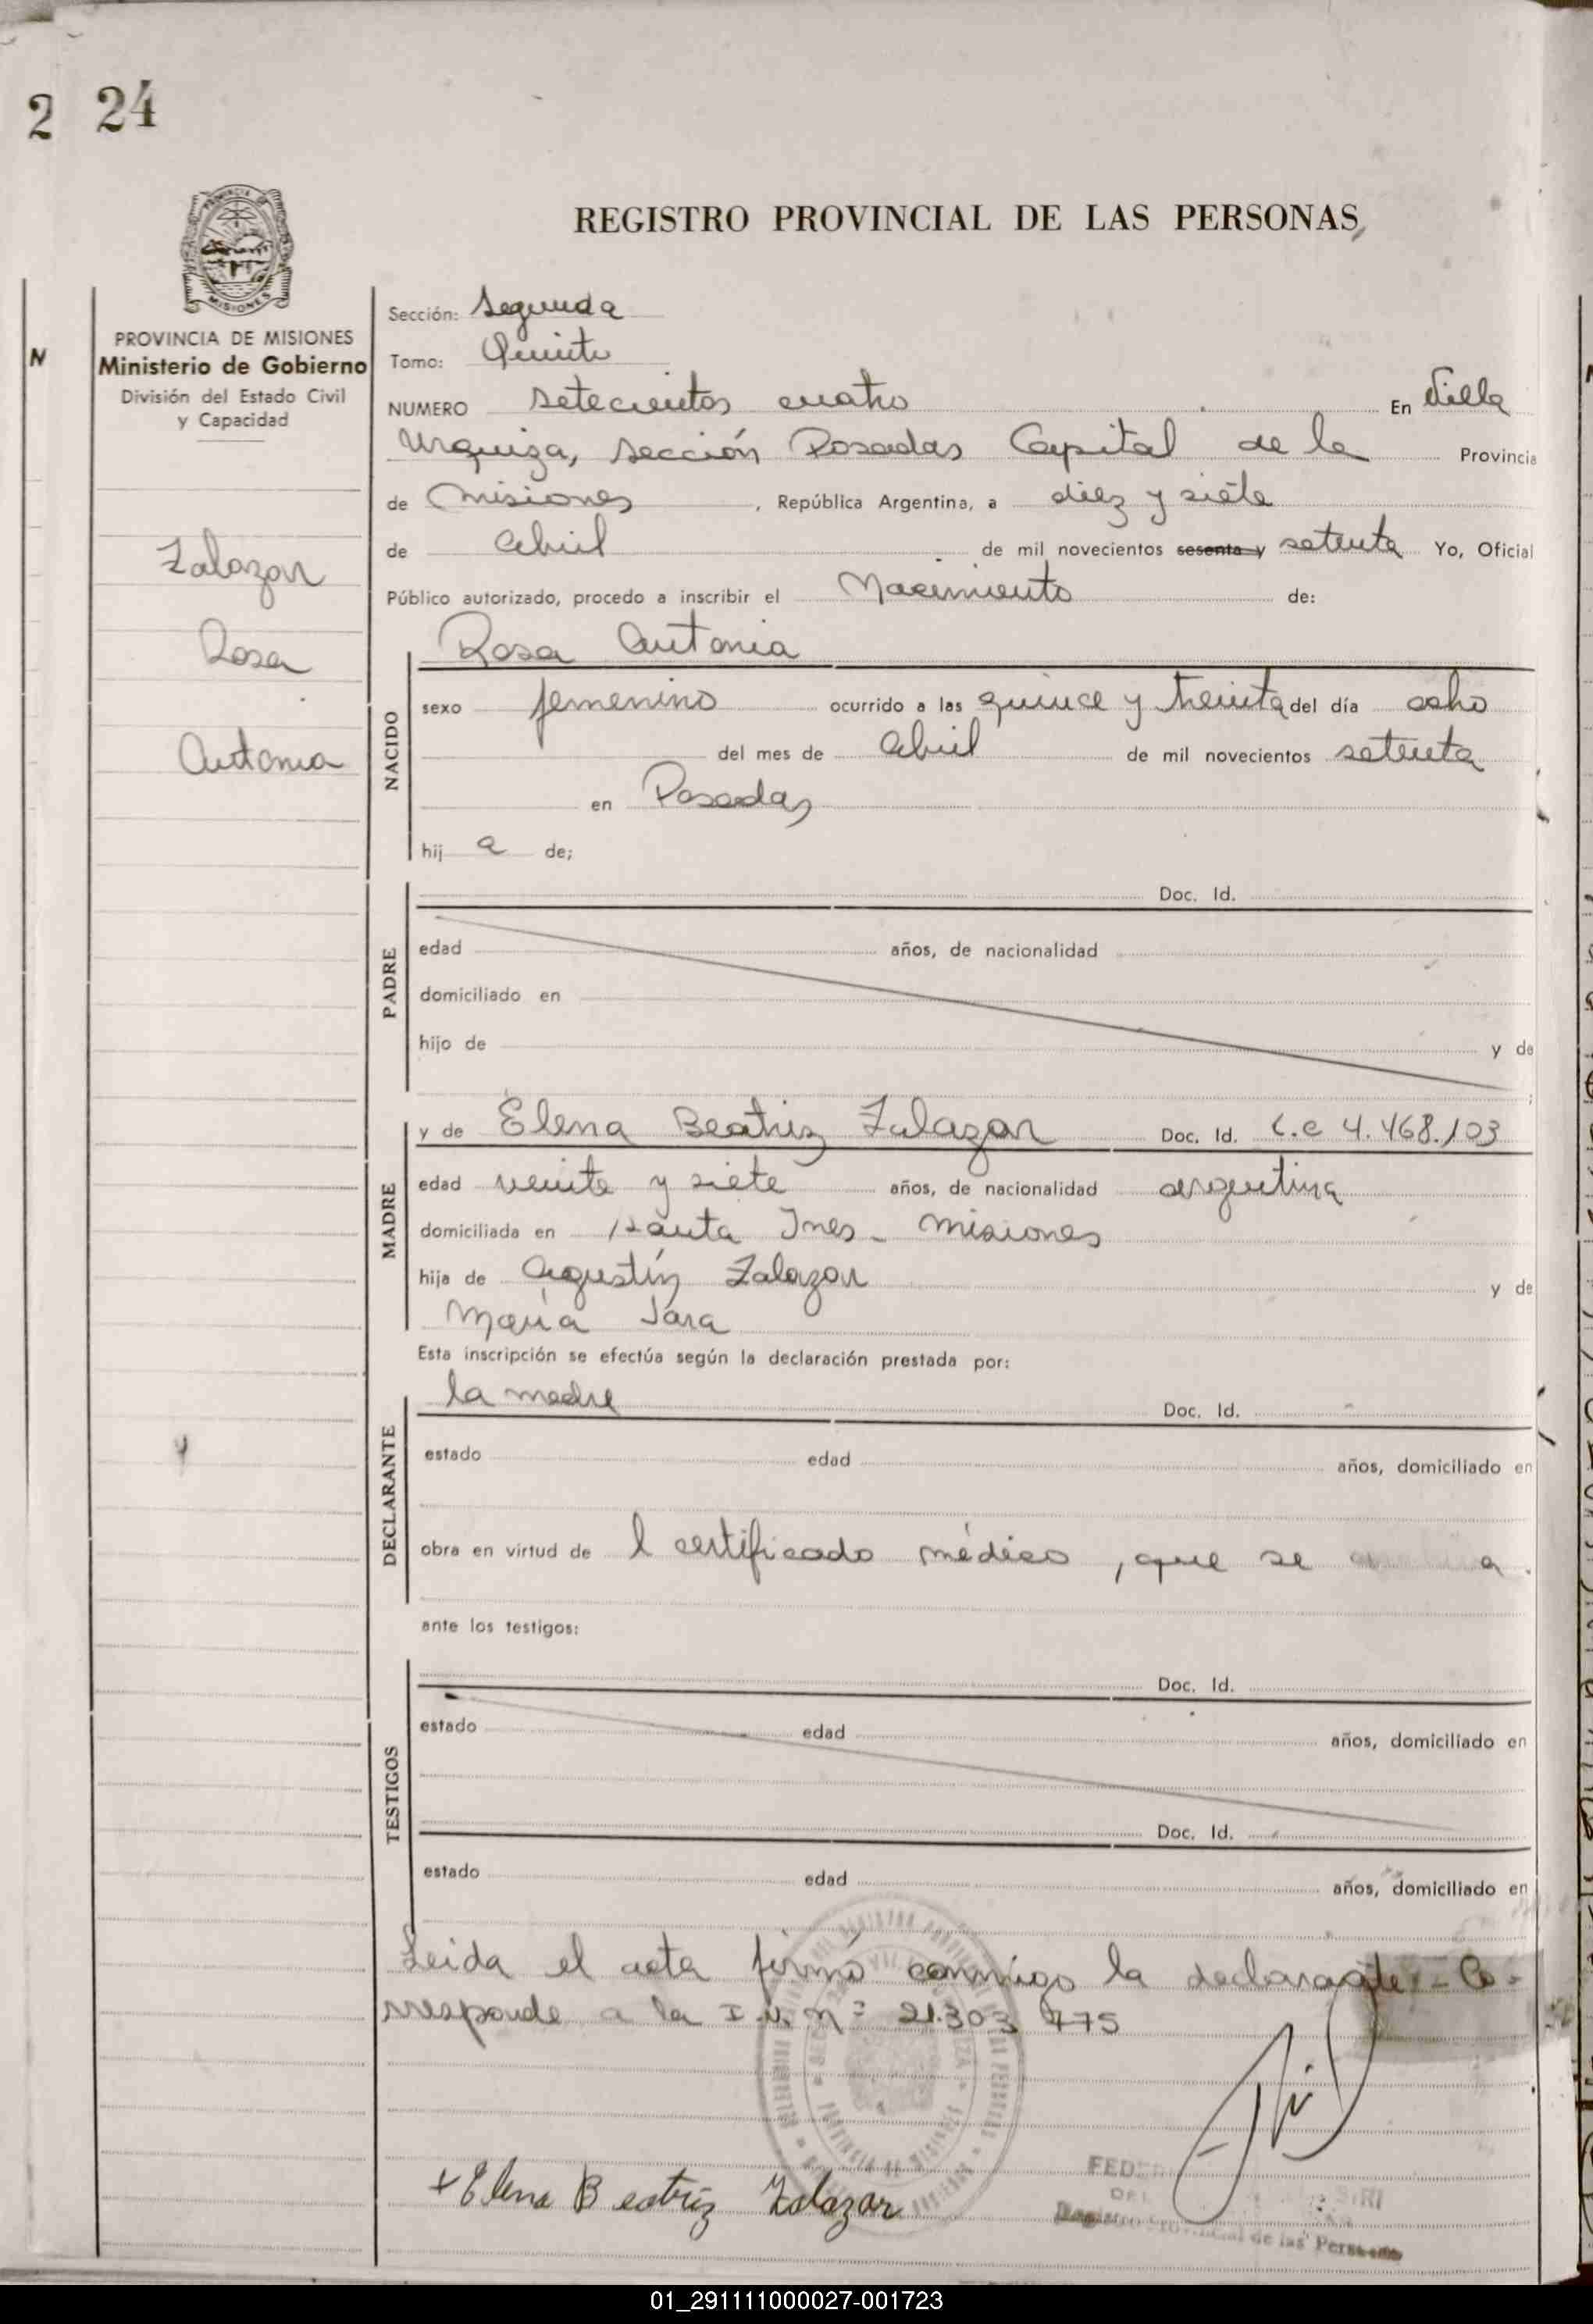 2 24
REGISTRO PROVINCIAL DE LAS PERSONAS
PROVINCIA DE
MISIONES
PROVINCIA DE MISIONES
Ministerio de Gobierno
División del Estado Civil
y Capacidad
N
Zalazar
Rosa
Antonia
Sección: Segunda
Tomo: Quinto
NUMERO setecientos cuatro En Villa
Urquiza, sección Posadas Capital de la Provincia
de Misiones, República Argentina, a diez y siete
de abril de mil novecientos sesenta y setenta Yo, Oficial
Público autorizado, procedo a inscribir el Nacimiento de:
NACIDO
Rosa Antonia
sexo femenino ocurrido a las quince y treinta del día ocho
del mes de abril de mil novecientos setenta
en Posadas
hij a de;
PADRE
Doc. Id.
edad años, de nacionalidad
domiciliado en
hijo de y de
;
MADRE
y de Elena Beatriz Zalazar Doc. Id. L.C 4.468.103
edad veinte y siete años, de nacionalidad argentina
domiciliada en Santa Ines - Misiones
hija de Agustín Zalazar y de
María Jara
Esta inscripción se efectúa según la declaración prestada por:
DECLARANTE
la madre Doc. Id.
estado edad años, domiciliado en
obra en virtud de l certificado médico, que se
ante los testigos:
TESTIGOS
Doc. Id.
estado edad años, domiciliado en
Doc. Id.
estado edad años, domiciliado en
Leida el acta firmó conmigo la declarante - Co-
rresponde a la I.N. Nº 21.303 775
+ Elena Beatriz Zalazar
FEDER
Registro Provincial de las Personas
01_291111000027-001723